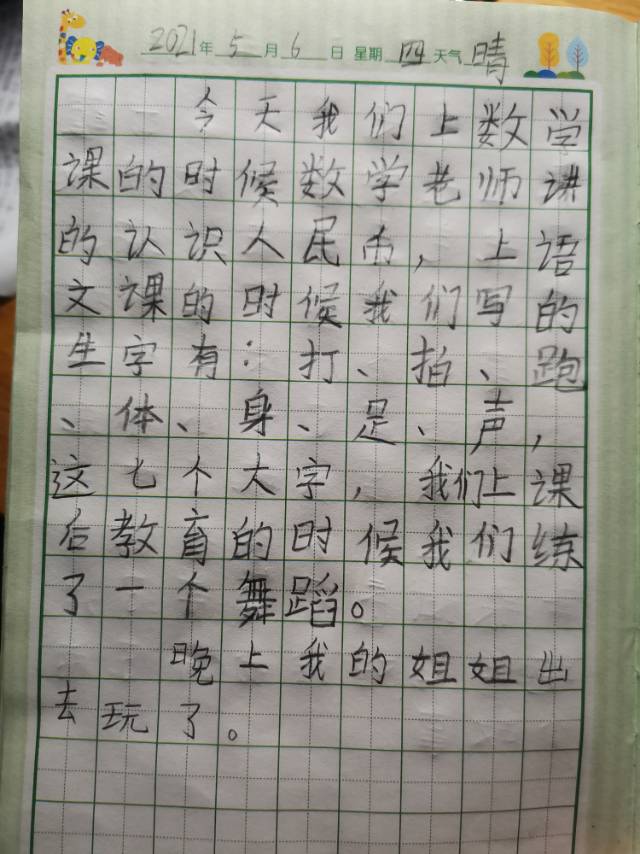 2021年5月6日 星期四天气晴
今天我们上数学
课的时候数学老师讲
的认识人民币，上语
文课的时候我们写的
生字有：打、拍、跑
、体、身、足、声，
这七个大字，我们上课
后教育的时候我们练
了一个舞蹈。
晚上我的姐姐出
去玩了。